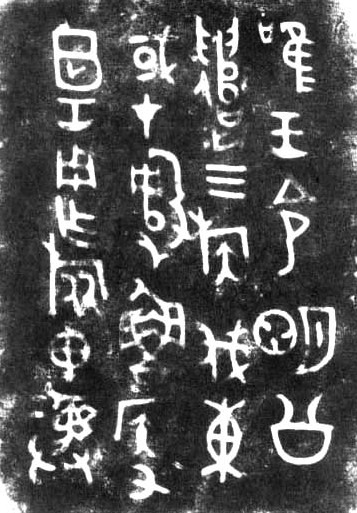 唯王令明公
遣三族伐東
或才䢼魯侯又
工用乍旅彝